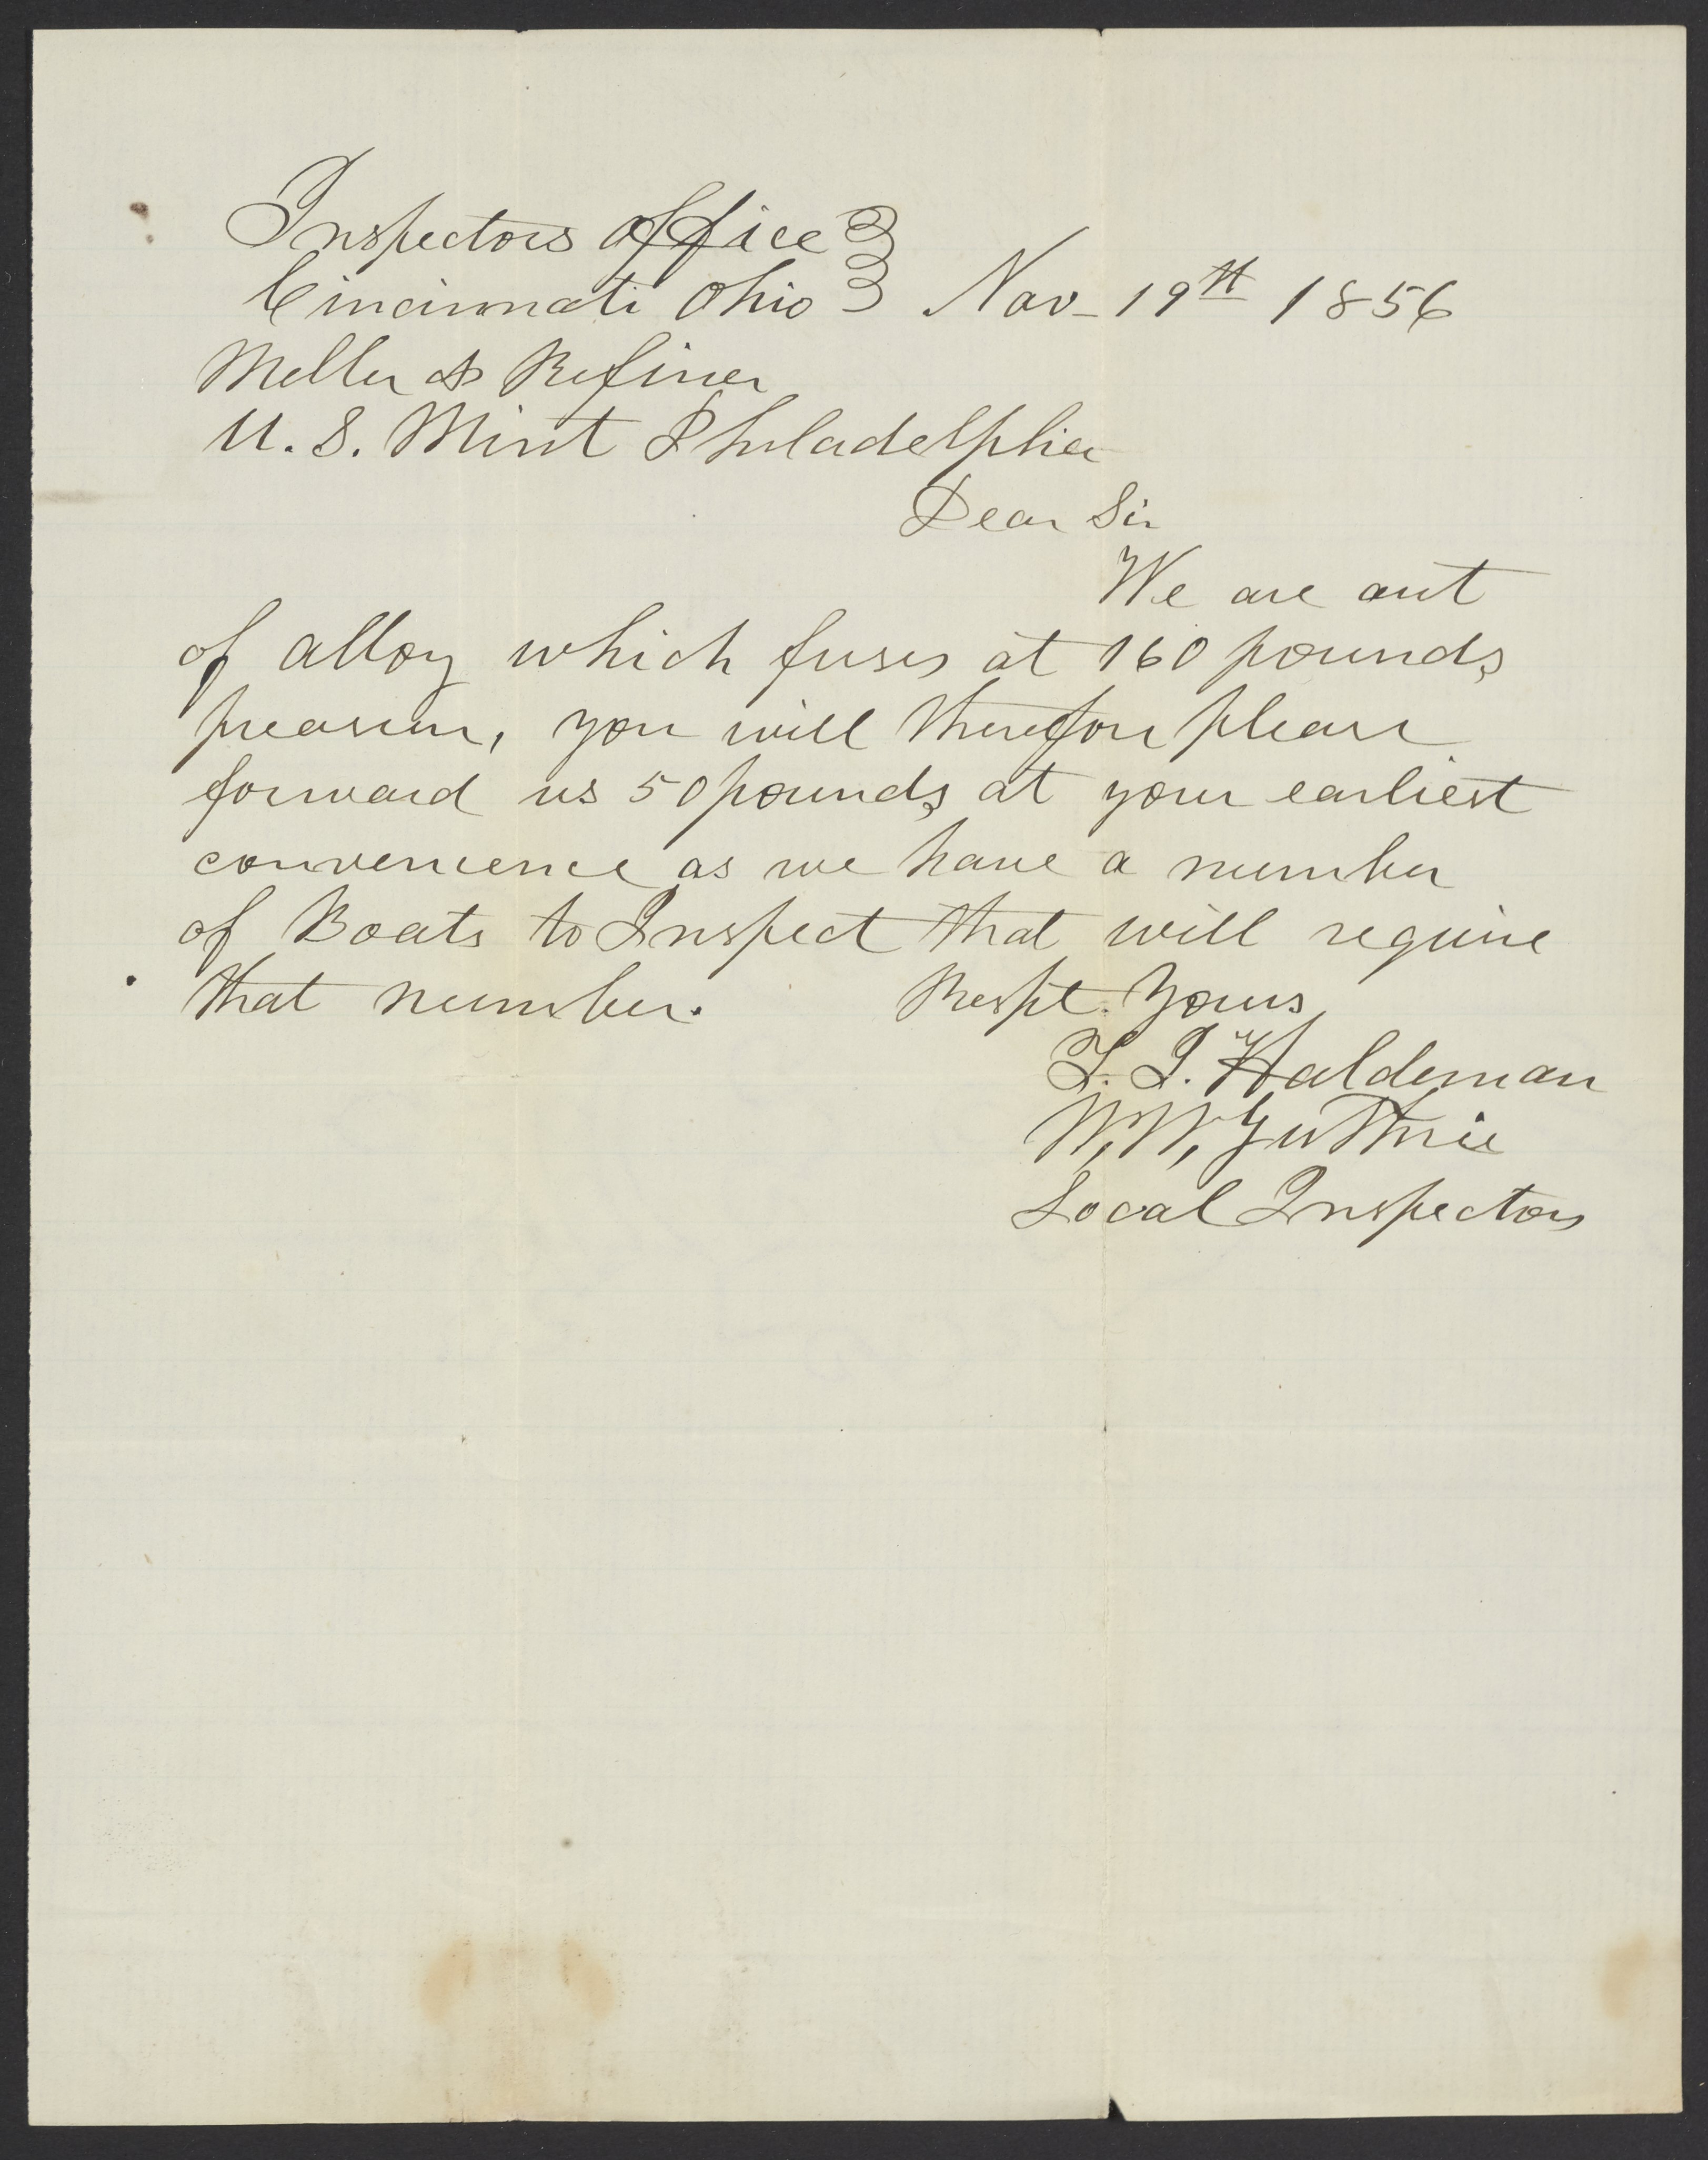 Inspectors Office
Cincinnati Ohio Nov 19th 1856
Melter & Refiner
U. S. Mint Philadelphia
Dear Sir
We are out
of alloy which fuses at 160 pounds
preasure, you will therefore please
forward us 50 pounds at your earliest
convenience as we have a number
of Boats to Inspect that will require
that number. Respt. Yours
Haldeman
W. W. Guthrie
Local Inspectors